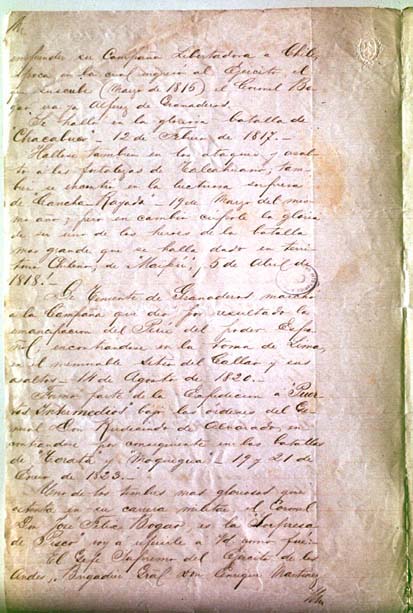 emprender su Campaña Libertadora a Chile,
época en la cual ingresó al Ejército el
que suscribe (Marzo de 1816) el Coronel Bo-
gado, era ya Alferez de Granaderos.
Se halló en la gloriosa batalla de
Chacabuco – 12 de Febrero de 1817. –
Hallose tambien en los ataques y asal-
to a las fortalezas de Talcahuano; tam-
bien se encontró en la luctuosa sorpresa
de Cancha-Rayada – 19 de Marzo del mis-
mo año; pero en cambio cúpole la gloria
de ser uno de los heroes de la batalla
mas grande que se halla dado en terri-
torio Chileno, de Maipú, 5 de Abril de
1818. –
De Teniente de Granaderos marchó
a la Campaña que dio por resultado la
emancipacion del Perú del poder Espa-
ñol; encontrandose en la toma de Lima,
en el memorable sitio del Callao y sus
asaltos – 14 de Agosto de 1820. –
Formó parte de la Expedicion a "Puer-
tos Intermedios" bajo las órdenes del Ge-
neral Don Rudecindo de Alvarado, en-
contrandose por consiguiente en las batallas
de "Torata y "Moquegua" – 19 y 21 de
Enero de 1823. –
Uno de los timbres mas gloriosos que
ostenta en su carrera militar el Coronel
Don José Felix Bogado, es la "Sorpresa
de Pisco" voy a referirle a Vd como fué:
El Gefe Supremo del Ejército de los
Andes, Brigadier Gral Don Enrique Martinez